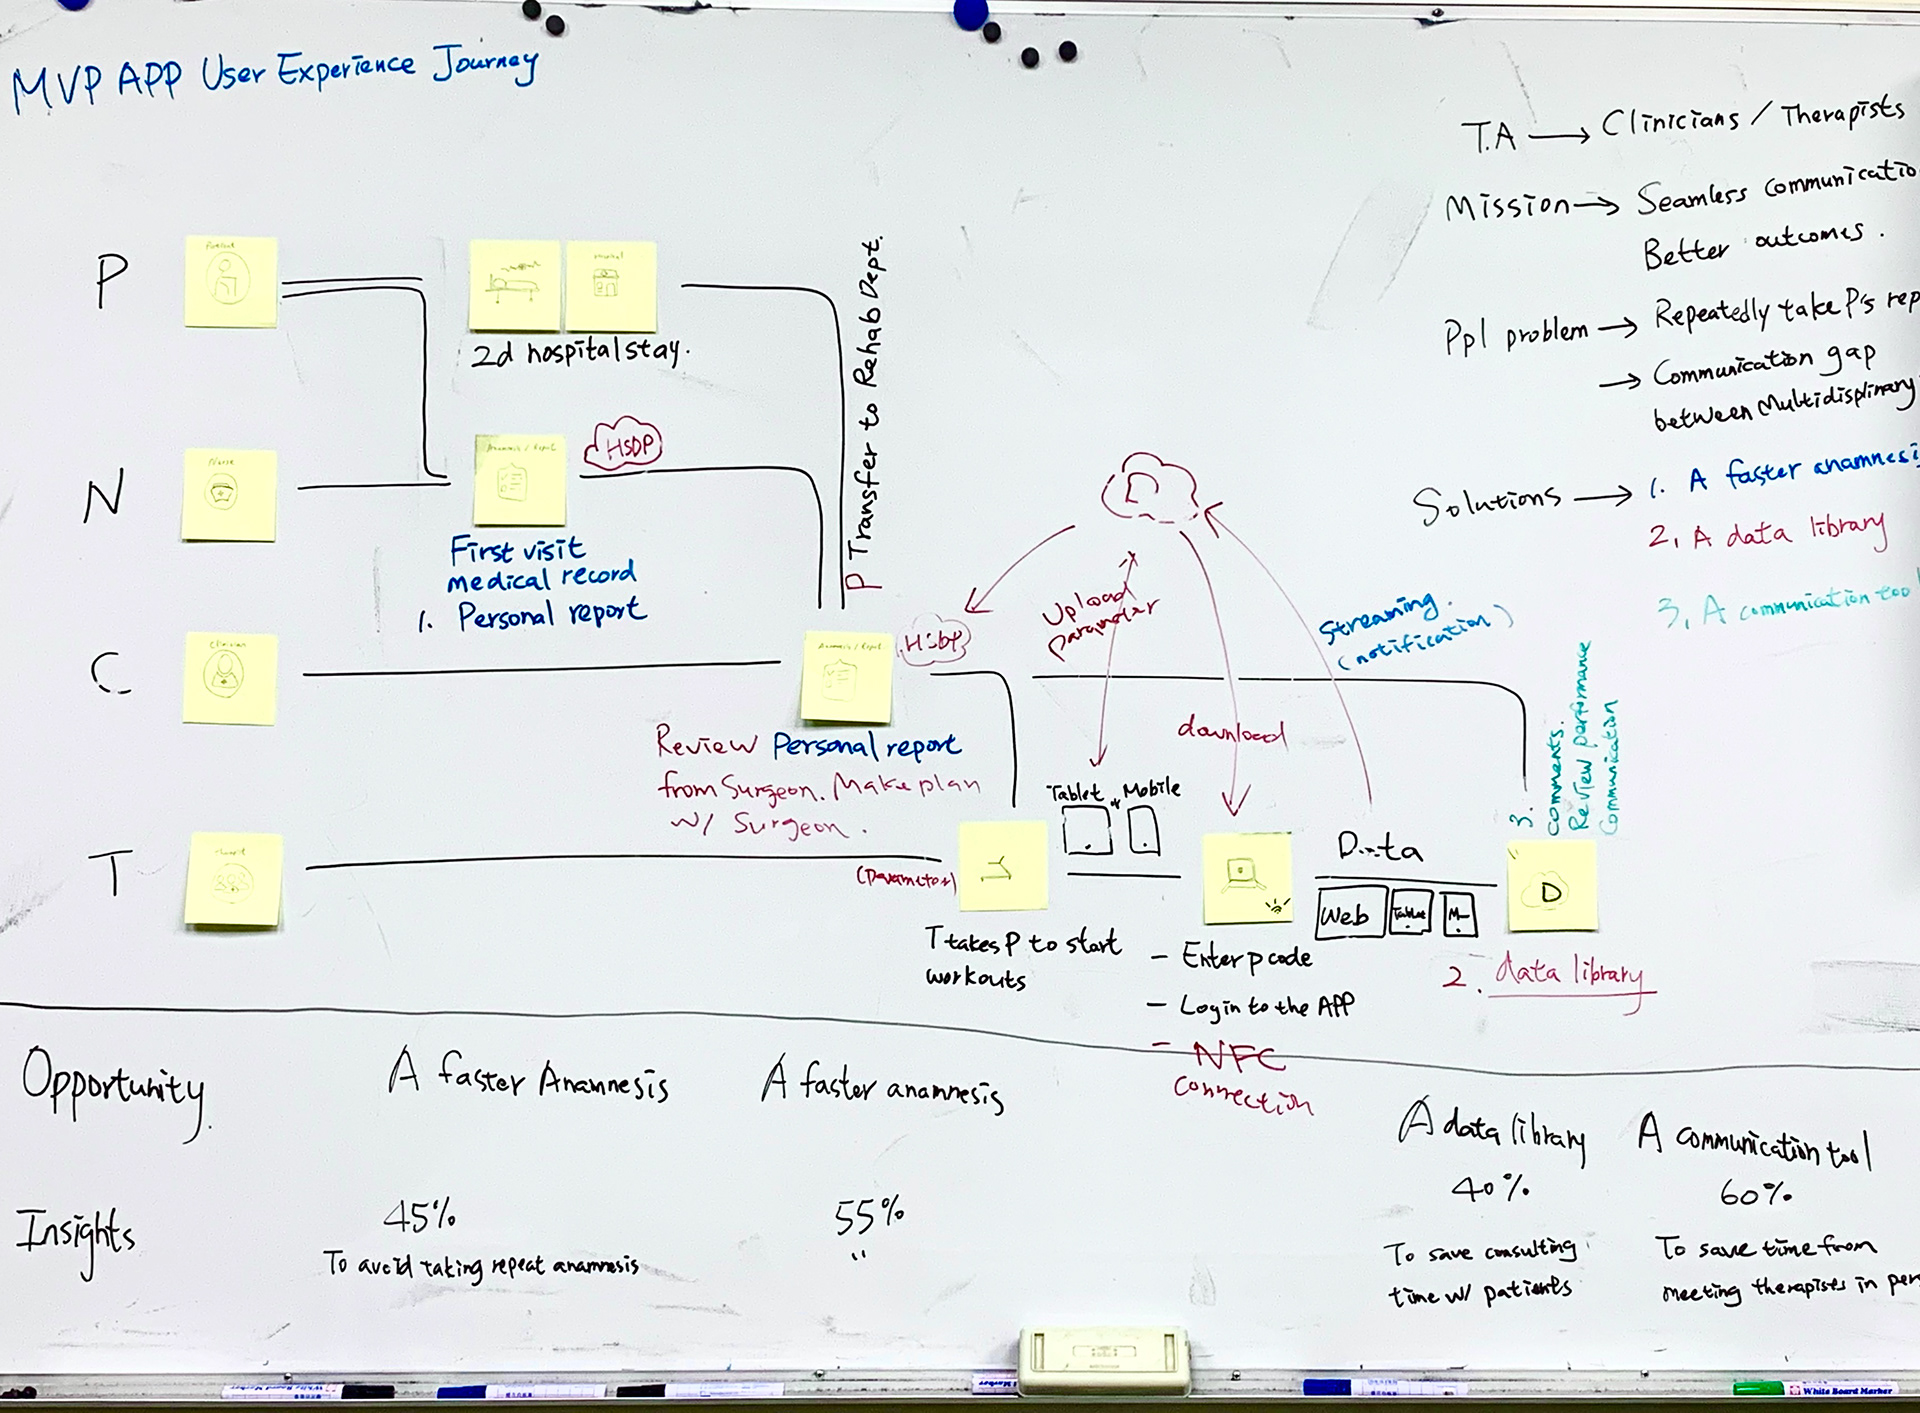 MVP APP User Experience Journey
T.A → Clinicians / Therapists
Mission → Seamless communicatio
Better outcomes.
Ppl problem → Repeatedly take P's rep
→ Communication gap
between Multidisplinary
Solutions → 1. A faster anamnesi
2. A data library
3. A communication tool
P
Patient
Hospital
2d hospital stay.
P Transfer to Rehab Dept.
N
Nurse
Anamnesis / Report
HSDP
First visit
medical record
1. Personal report
C
Clinician
Anamnesis / Report
HSDP
Review Personal report
from Surgeon. Make plan
w/ Surgeon.
D
Upload
parameter
download
Streaming
(notification)
3. comments.
Review performance
Communication
T
(Parameter)
T takes P to start
workouts
Tablet or Mobile
- Enter p code
- Login to the APP
- NFC
connection
Data
Web
Tablet
M
D
2. data library
Opportunity
A faster Anamnesis
A faster anamnesis
A data library
A communication tool
Insights
45%
To avoid taking repeat anamnesis
55%
"
40%
To save consulting
time w/ patients
60%
To save time from
meeting therapists in per
White Board Marker
White Board Marker